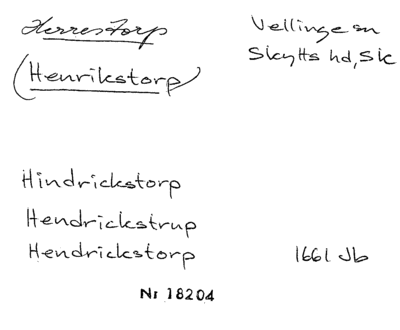 Herrestorp Vellinge sn
(Henrikstorp) Skytts hd, Sk
Hindrickstorp
Hendrickstrup
Hendrickstorp 1661 Jb
Nr 18204